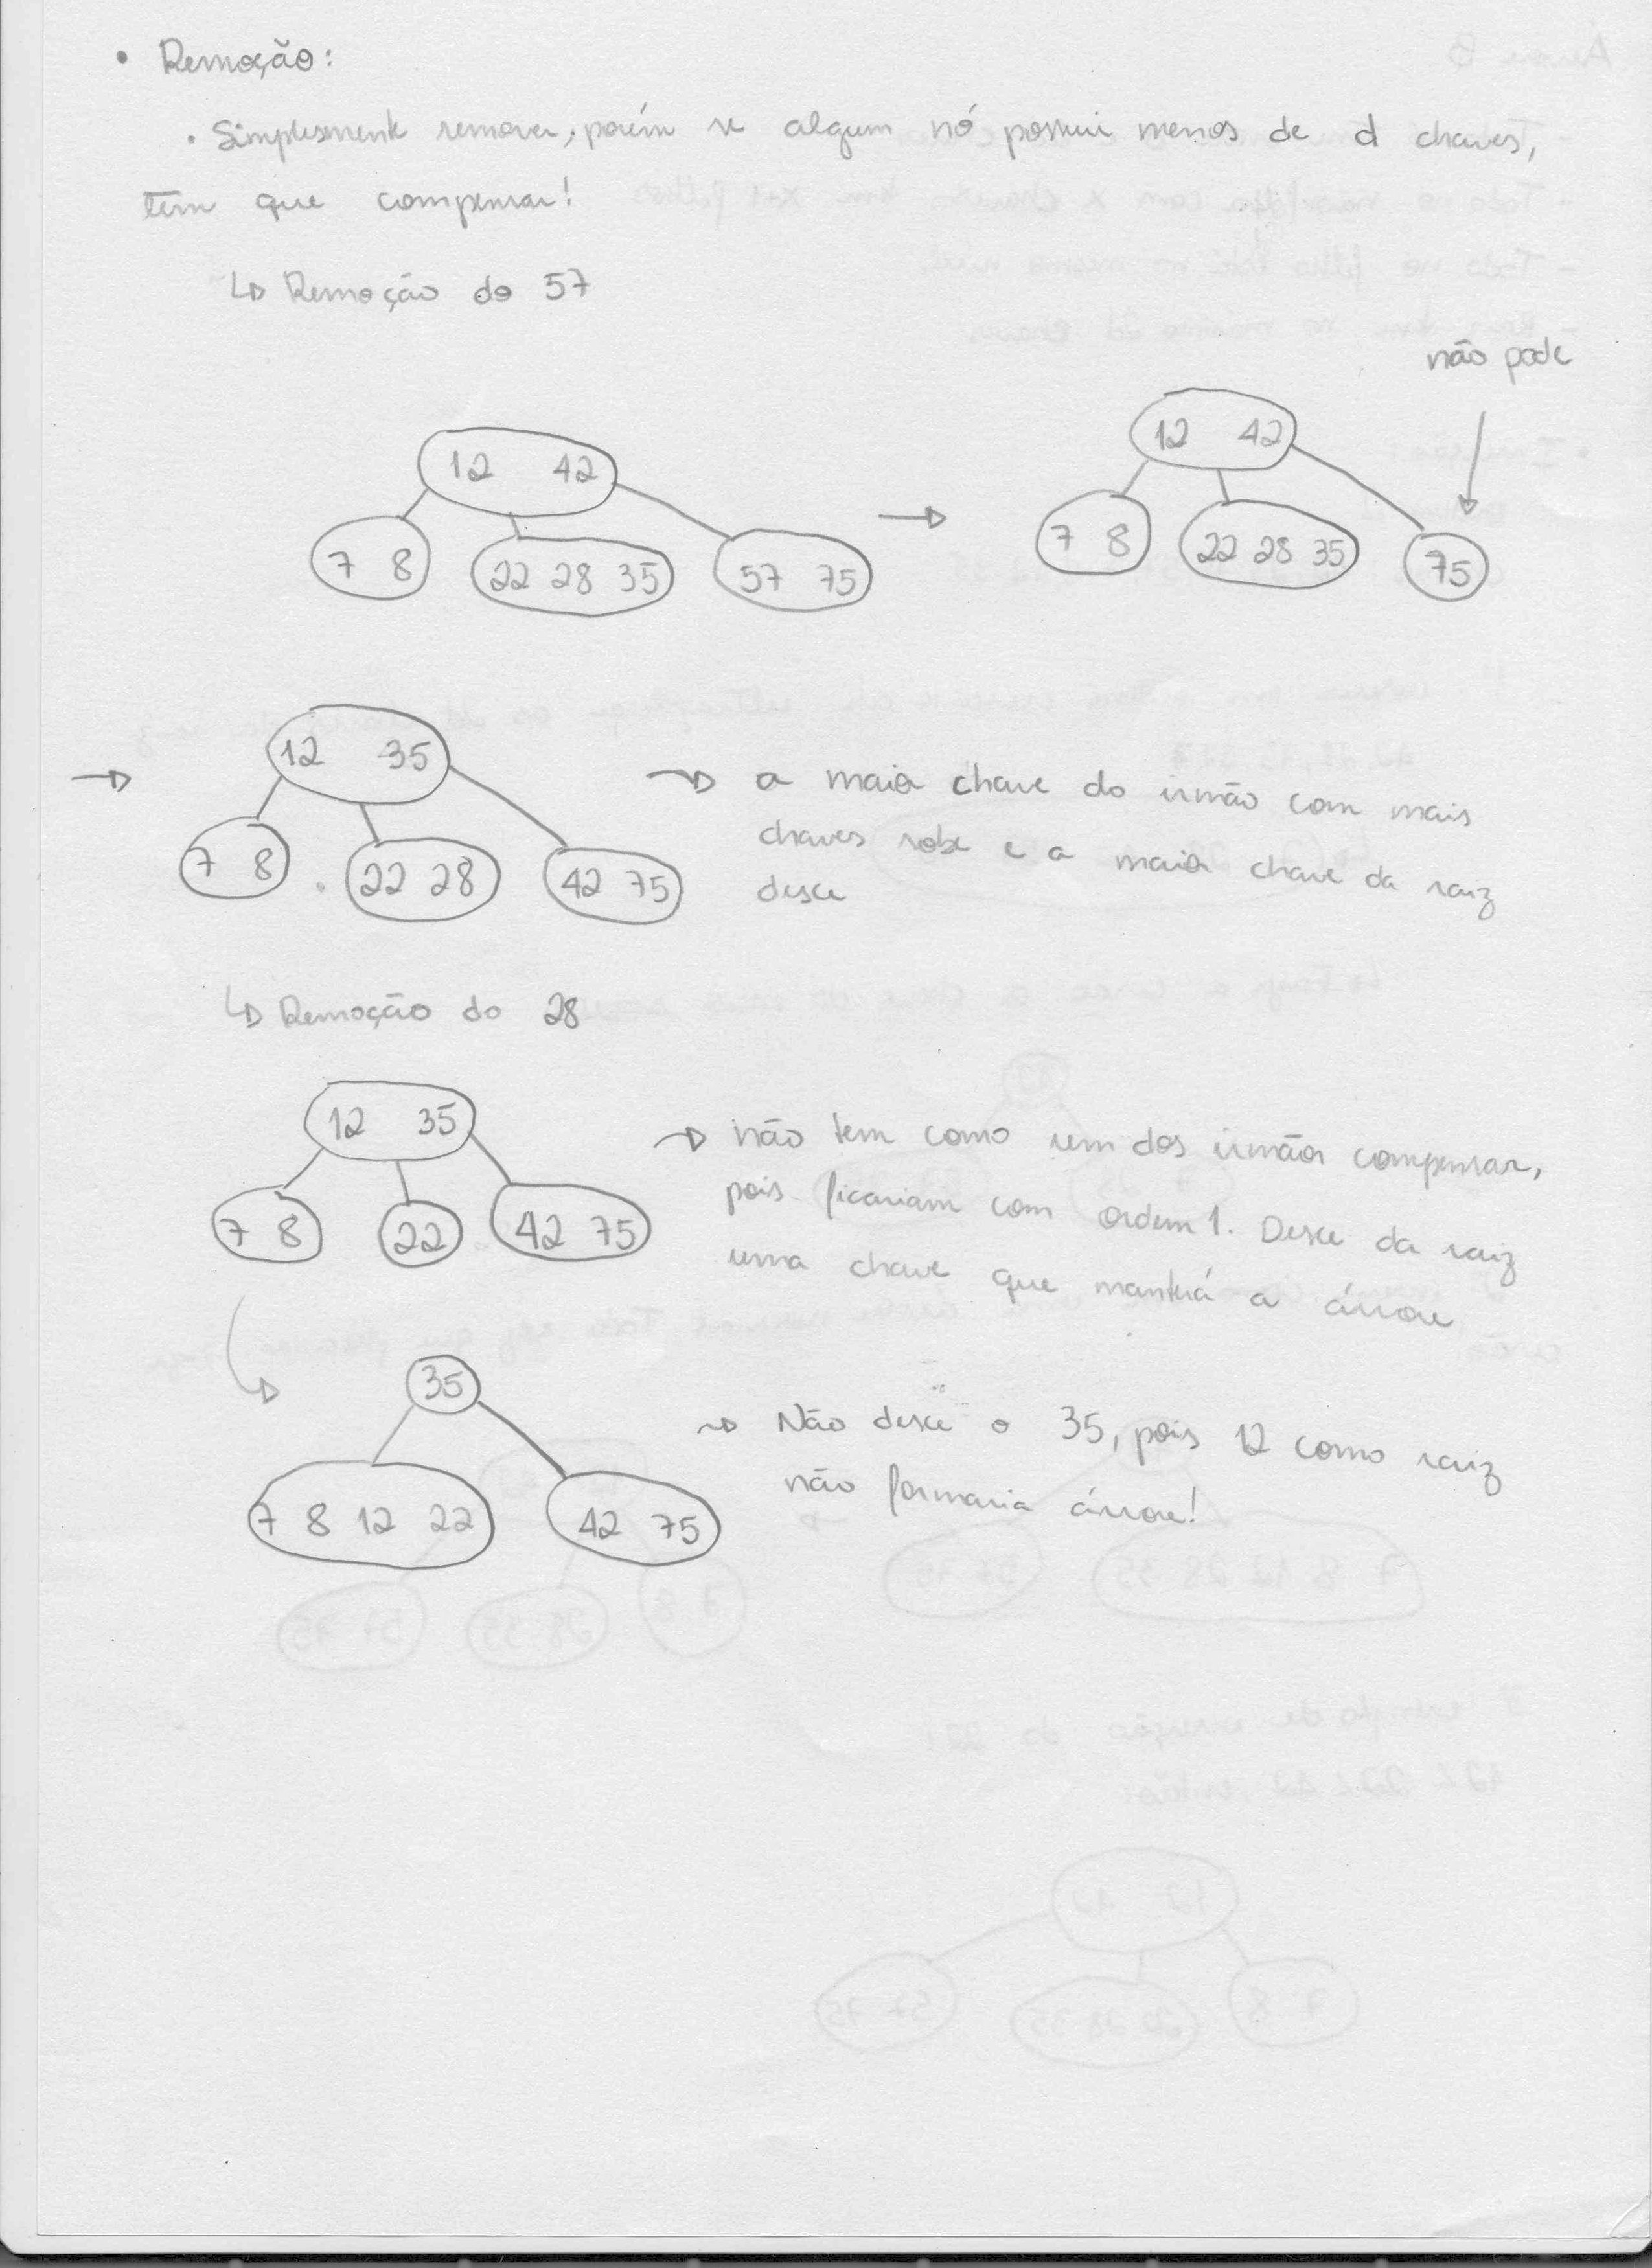 • Remoção:
• Simplesmente remover, porém se algum nó possuir menos de d chaves,
tem que compensar!
↳ Remoção do 57
não pode
12 42
12 42
→
7 8
22 28 35
57 75
7 8
22 28 35
75
→
12 35
7 8
22 28
42 75
→ a maior chave do irmão com mais
chaves sobe e a maior chave da raiz
desce
↳ Remoção do 28
12 35
7 8
22
42 75
→ não tem como um dos irmãos compensar,
pois ficariam com ordem 1. Desce da raiz
uma chave que manterá a árvore
35
7 8 12 22
42 75
→ Não desce o 35, pois 12 como raiz
não formaria árvore!